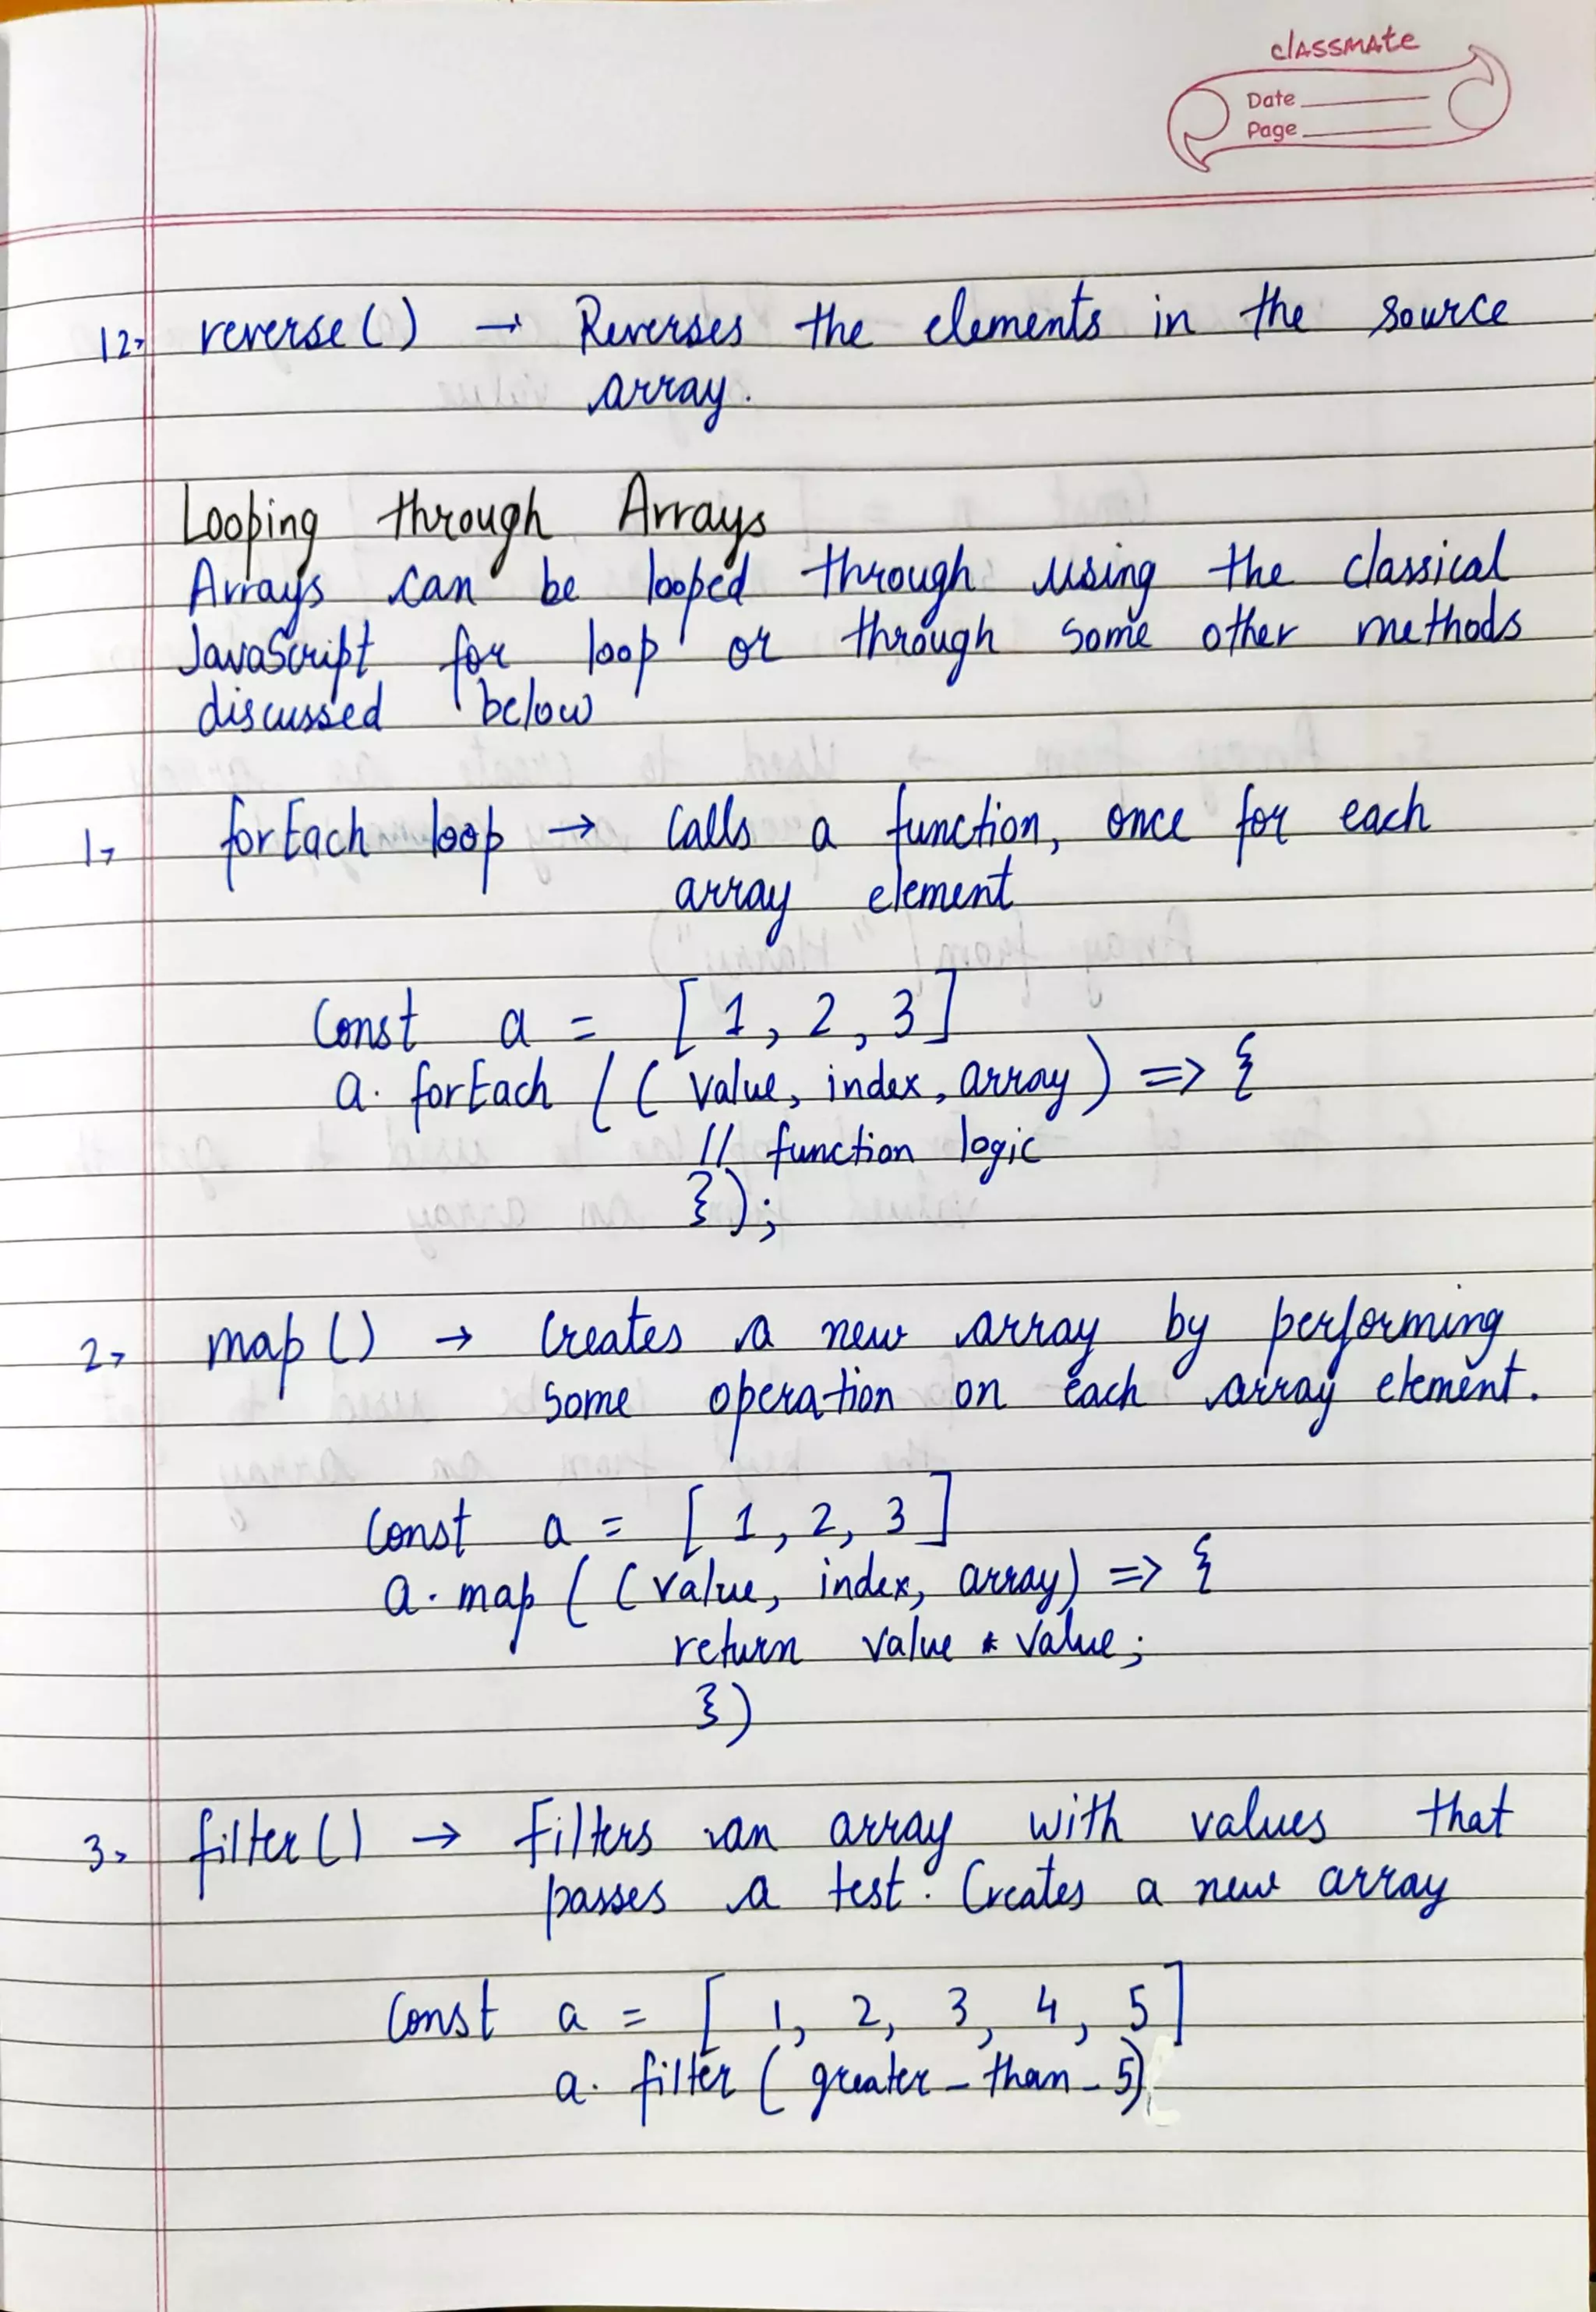 classmate
Date
Page
12, reverse() → Reverses the elements in the source
array.
Looping through Arrays
Arrays can be looped through using the classical
JavaScript for loop or through some other methods
discussed below
1, forEach loop → Calls a function, once for each
array element
Const a = [1, 2, 3]
a. forEach ( ( value, index, array ) => {
// function logic
});
2, map() → Creates a new array by performing
some operation on each array element.
Const a = [ 1, 2, 3 ]
a. map ( ( value, index, array) => {
return value * value;
})
3, filter() → Filters an array with values that
passes a test. Creates a new array
Const a = [ 1, 2, 3, 4, 5]
a. filter ( greater_than_5)